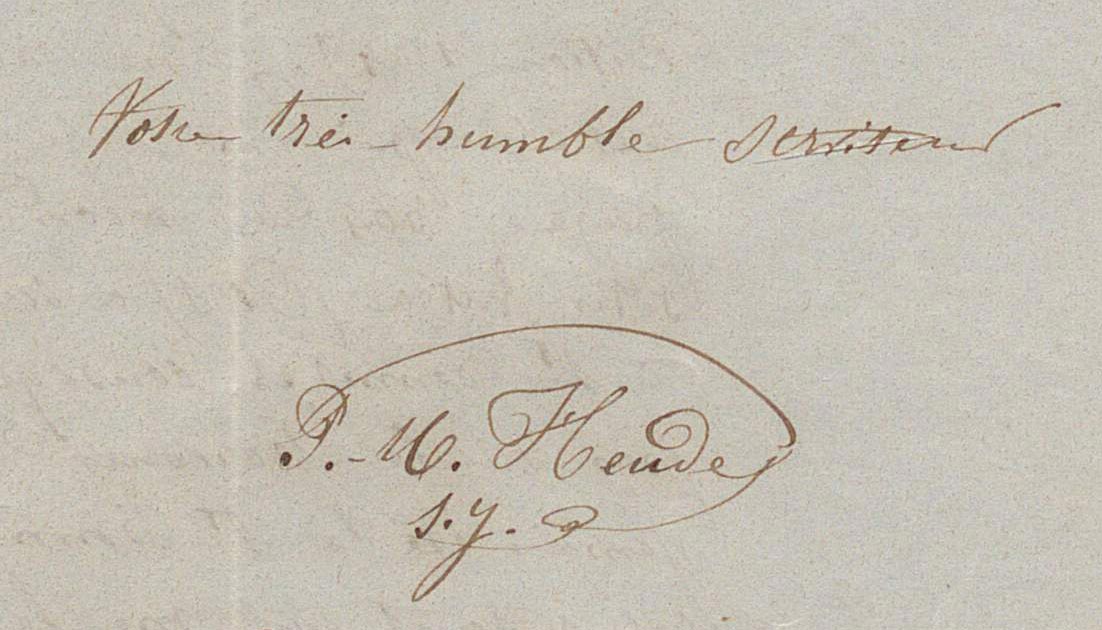 Votre très humble serviteur
P.-M. Heude
s.j.